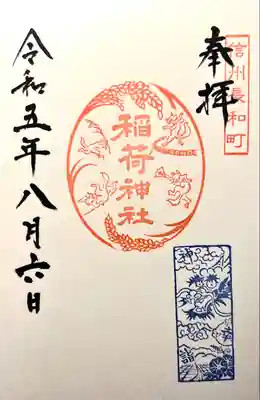 信州長和町
奉拝
稲荷神社
令和五年八月六日